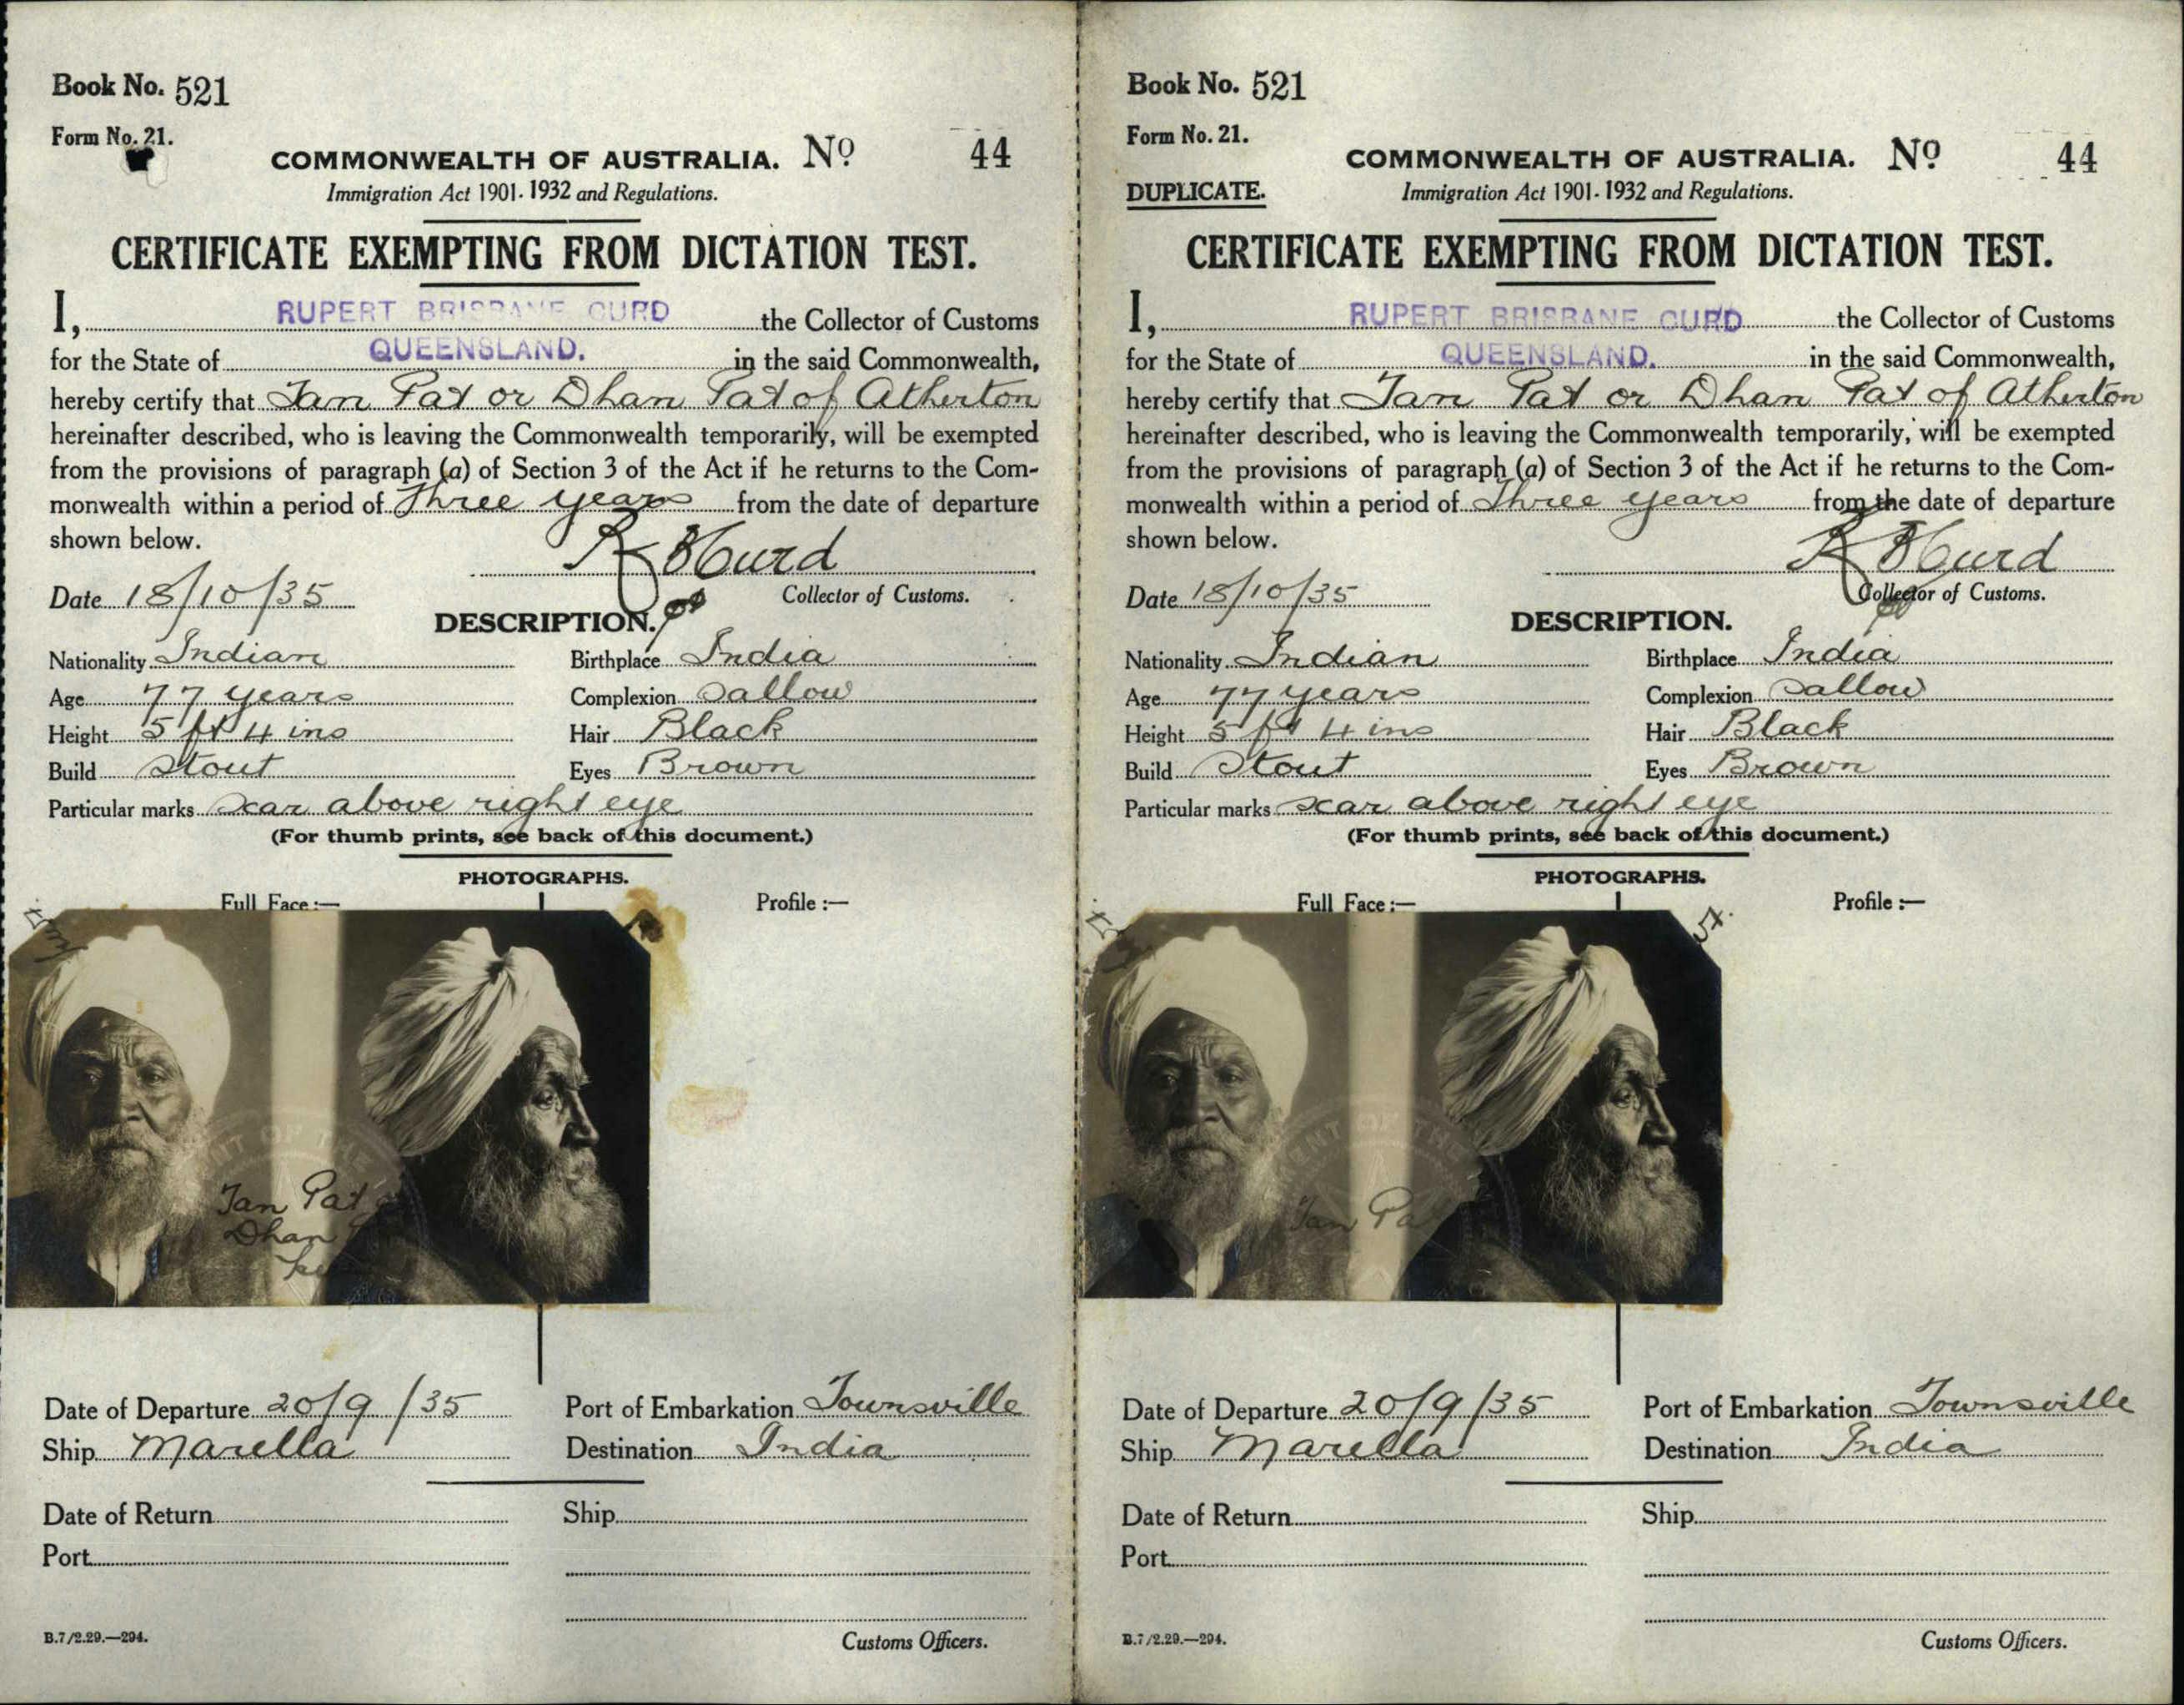 Book No. 521
Form No. 21.
COMMONWEALTH OF AUSTRALIA. No 44
Immigration Act 1901-1932 and Regulations.
CERTIFICATE EXEMPTING FROM DICTATION TEST.
I, RUPERT BRISBANE CURD the Collector of Customs
for the State of QUEENSLAND. in the said Commonwealth,
hereby certify that Tan Pat or Dhan Pat of Atherton
hereinafter described, who is leaving the Commonwealth temporarily, will be exempted
from the provisions of paragraph (a) of Section 3 of the Act if he returns to the Com-
monwealth within a period of Three years from the date of departure
shown below.
R B Curd
Date 18/10/35
Collector of Customs.
DESCRIPTION.
Nationality Indian Birthplace India
Age 77 years Complexion Sallow
Height 5 ft 4 ins Hair Black
Build Stout Eyes Brown
Particular marks scar above right eye
(For thumb prints, see back of this document.)
PHOTOGRAPHS.
Full Face :— Profile :—
Tan Pat
Dhan
Date of Departure 20/9/35 Port of Embarkation Townsville
Ship Marella Destination India
Date of Return Ship
Port
B.7/2.29.—294. Customs Officers.
Book No. 521
Form No. 21.
COMMONWEALTH OF AUSTRALIA. No 44
DUPLICATE. Immigration Act 1901-1932 and Regulations.
CERTIFICATE EXEMPTING FROM DICTATION TEST.
I, RUPERT BRISBANE CURD the Collector of Customs
for the State of QUEENSLAND. in the said Commonwealth,
hereby certify that Tan Pat or Dhan Pat of Atherton
hereinafter described, who is leaving the Commonwealth temporarily, will be exempted
from the provisions of paragraph (a) of Section 3 of the Act if he returns to the Com-
monwealth within a period of Three years from the date of departure
shown below.
R B Curd
Date 18/10/35
Collector of Customs.
DESCRIPTION.
Nationality Indian Birthplace India
Age 77 years Complexion Sallow
Height 5 ft 4 ins Hair Black
Build Stout Eyes Brown
Particular marks scar above right eye
(For thumb prints, see back of this document.)
PHOTOGRAPHS.
Full Face :— Profile :—
Tan Pat
Date of Departure 20/9/35 Port of Embarkation Townsville
Ship Marella Destination India
Date of Return Ship
Port
B.7/2.29.—294. Customs Officers.